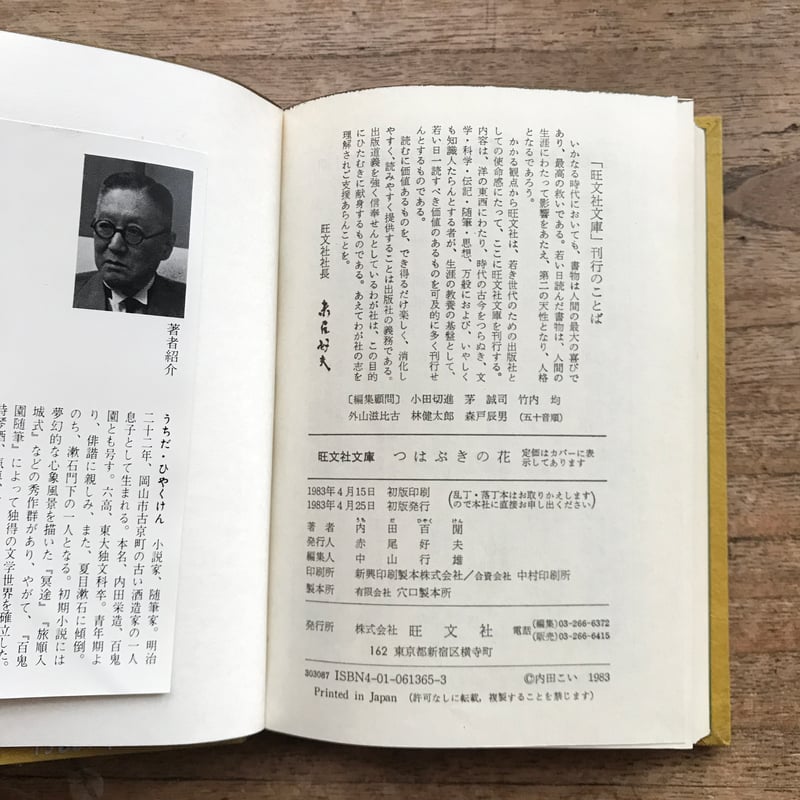 「旺文社文庫」刊行のことば
いかなる時代においても、書物は人間の最大の喜びで
あり、最高の救いである。若い日読んだ書物は、人間の
生涯にわたって影響をあたえ、第二の天性となり、人格
となるであろう。
かかる観点から旺文社は、若き世代のための出版社と
しての使命感にたって、ここに旺文社文庫を刊行する。
内容は、洋の東西にわたり、時代の古今をつらぬき、文
学・科学・伝記・随筆・思想、万般におよび、いやしく
も知識人たらんとする者が、生涯の教養の基盤として、
若い日一読すべき価値のあるものを可及的に多く刊行せ
んとするものである。
読むに価値あるものを、でき得るだけ楽しく、消化し
やすく、読みやすく提供することは出版社の義務である。
出版道義を強く信奉せんとしているわが社は、この目的
にひたむきに献身するものである。あえてわが社の志を
理解されご支援あらんことを。
旺文社社長 赤尾好夫
〔編集顧問〕 小田切進 茅誠司 竹内均
外山滋比古 林健太郎 森戸辰男 (五十音順)
旺文社文庫 つはぶきの花 定価はカバーに表
示してあります
1983年4月15日 初版印刷 (乱丁・落丁本はお取りかえします
1983年4月25日 初版発行 ので本社に直接お申し出ください)
うち だ ひやく けん
著者 内田百閒
発行人 赤尾好夫
編集人 中山行雄
印刷所 新興印刷製本株式会社/合資会社 中村印刷所
製本所 有限会社 穴口製本所
発行所 株式会社 旺文社 電話 (編集)03-266-6372
(販売)03-266-6415
162 東京都新宿区横寺町
303087 ISBN4-01-061365-3 ©内田こい 1983
Printed in Japan (許可なしに転載,複製することを禁じます)
著者紹介
うちだ・ひやくけん 小説家、随筆家。明治
二十二年、岡山市古京町の古い酒造家の一人
息子として生まれる。本名、内田栄造、百鬼
園とも号す。六高、東大独文科卒。青年期よ
り、俳諧に親しみ、また、夏目漱石に傾倒。
のち、漱石門下の一人となる。初期小説には
夢幻的な心象風景を描いた『冥途』『旅順入
城式』などの秀作群があり、やがて、『百鬼
園随筆』によって独得の文学世界を確立した。